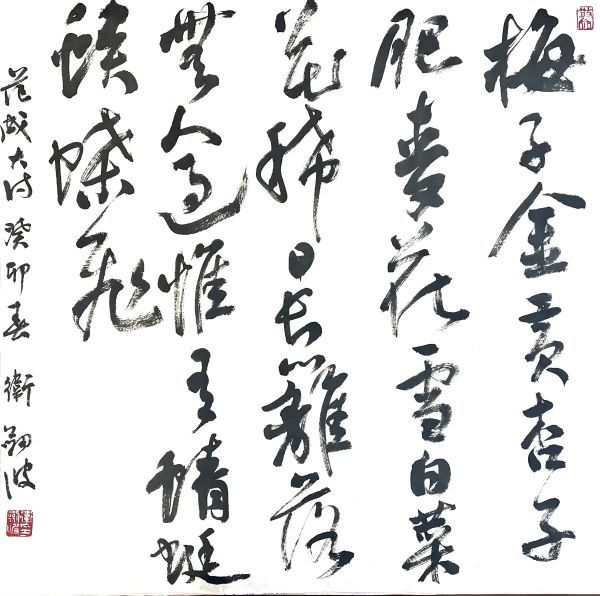 梅子金黃杏子
肥麥花雪白菜
花稀日長籬落
無人過惟有蜻蜓
蛺蝶飛
范成大诗 癸卯春 衛